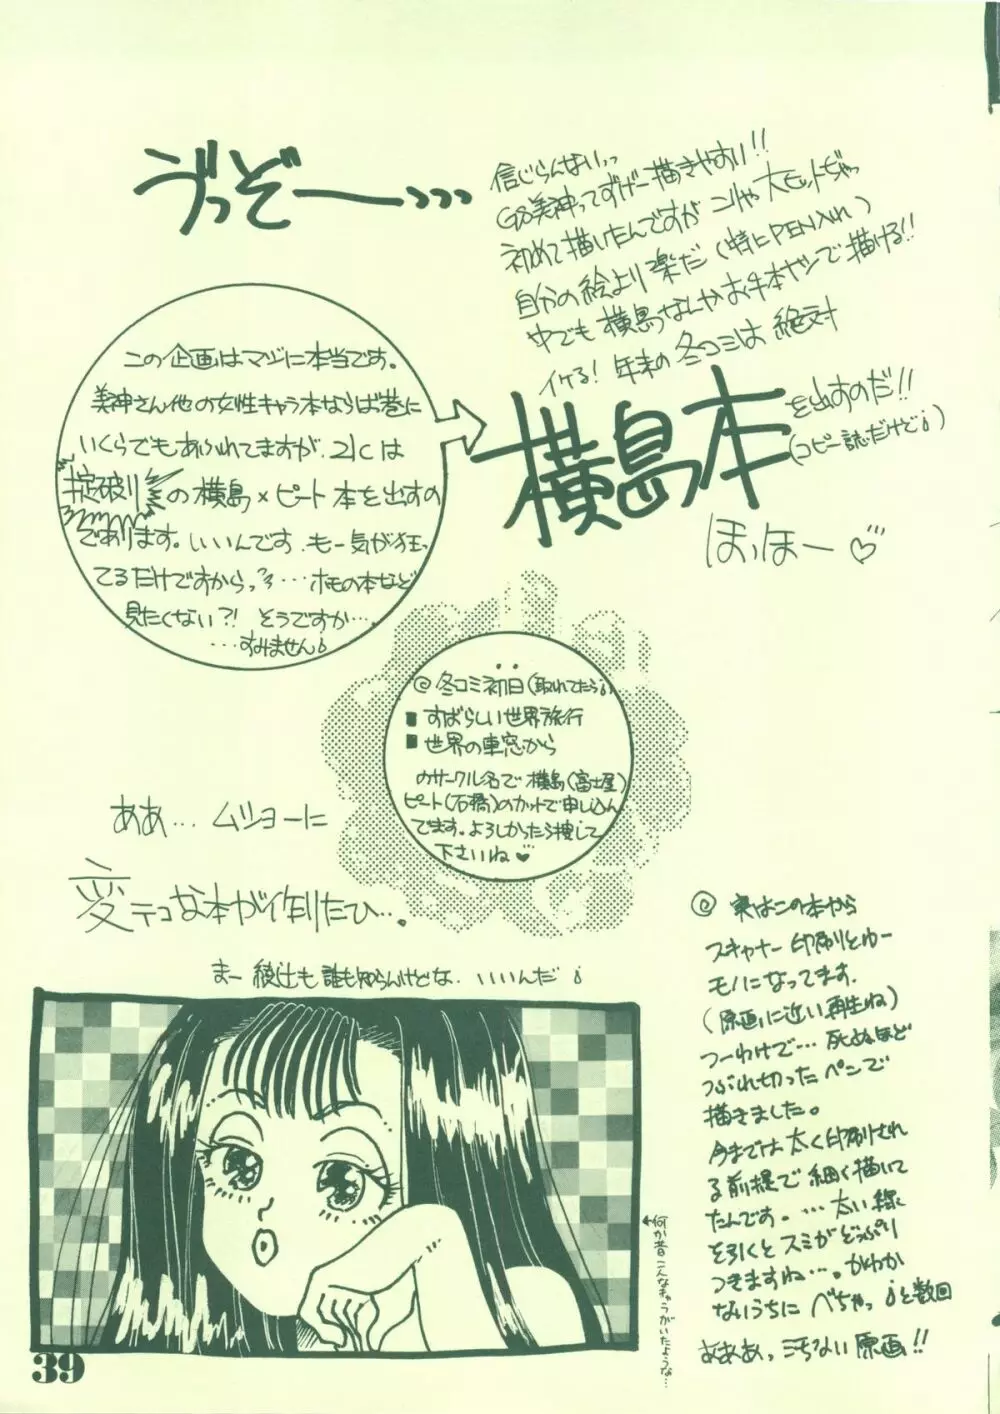 ゔっぞー、、、
信じらんないっっ
GS美神ってすげー描きやすい!!
初めて描いたんですが こりゃ 大ヒットぢゃっ
自分の絵より楽だ(特にPEN入れ)
中でも 横島なんかお手本ナシで描ける!!
イケる! 年末の冬コミは 絶対
横島本
を出すのだ!!
(コピー誌だけど)
ほっほー♡
この企画はマヂに本当です。
美神さん他の女性キャラ本ならば巷に
いくらでもあふれてますが、21cは
掟破り
の横島×ピート本を出すの
であります。いいんです、もー気が狂っ
てるだけですからっ…ホモの本など
見たくない?! そうですか….
…すみません
◎冬コミ初日(取れてたら)
■ すばらしい世界旅行
■ 世界の車窓から
のサークル名で 横島(富士屋)
ピート(石橋)のカットで申し込ん
でます。よろしかったら捜して
下さいね♥
ああ… ムショーに
変テコな本が作りたひ…。
まー 綾辻も 誰も知らんけどな、いいんだ
◎ 実はこの本から
スキャナー印刷とゆー
モノになってます.
(原画に近い再生ね)
つーわけで… 死ぬほど
つぶれ切ったペンで
描きました。
今までは太く印刷され
る前提で細く描いて
たんです。…太い線
を引くとスミがどっぷり
つきますね…。かわか
ないうちに べちゃっ と数回
あああっ きちない 原画!!
←何か昔こんなキャラがいたような…
39